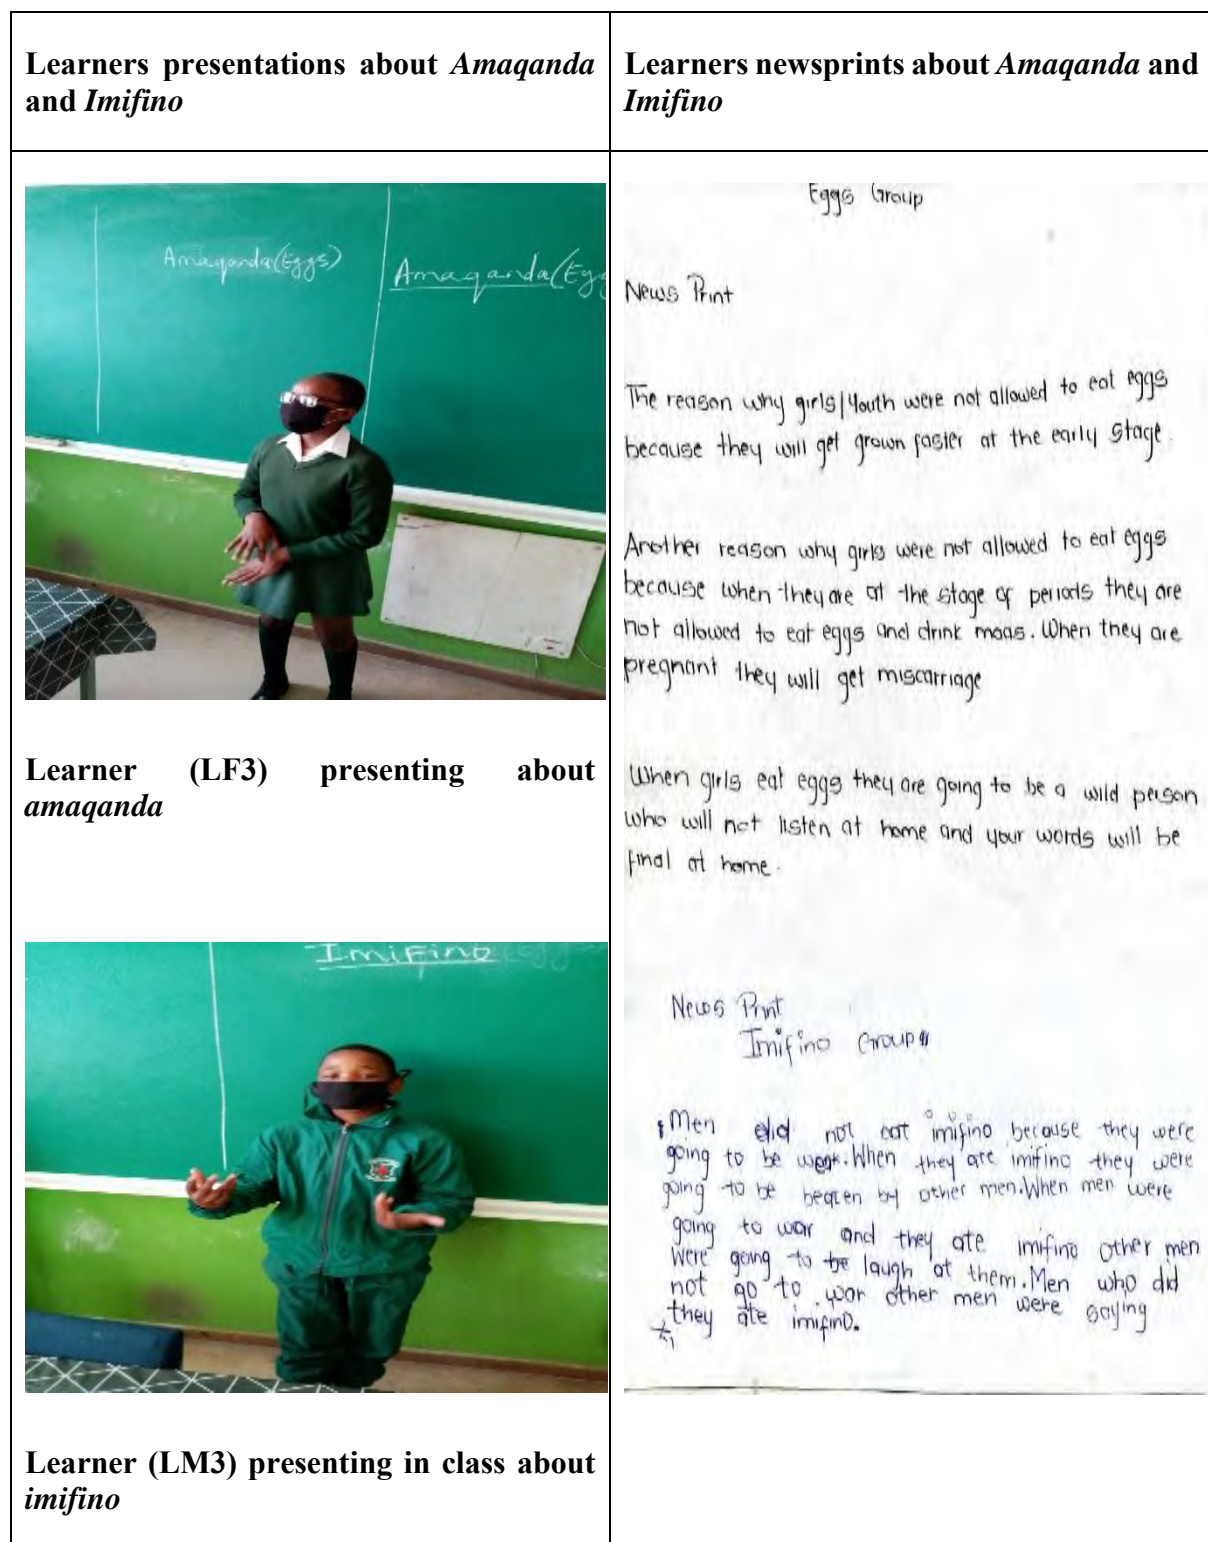 Learners presentations about Amaqanda
and Imifino
Learners newsprints about Amaqanda and
Imifino
Amaqanda(Eggs)
Amaqanda(Egg
Learner (LF3) presenting about
amaqanda
Imifino
Learner (LM3) presenting in class about
imifino
Eggs Group
News Print
The reason why girls/Youth were not allowed to eat eggs
because they will get grown faster at the early stage.
Another reason why girls were not allowed to eat eggs
because when they are at the stage of periods they are
not allowed to eat eggs and drink maas. When they are
pregnant they will get miscarriage
When girls eat eggs they are going to be a wild person
who will not listen at home and your words will be
final at home.
News Print
Imifino Group
Men did not eat imifino because they were
going to be weak. When they ate imifino they were
going to be beaten by other men. When men were
going to war and they ate imifino other men
were going to be laugh at them. Men who did
not go to war other men were saying
they ate imifino.